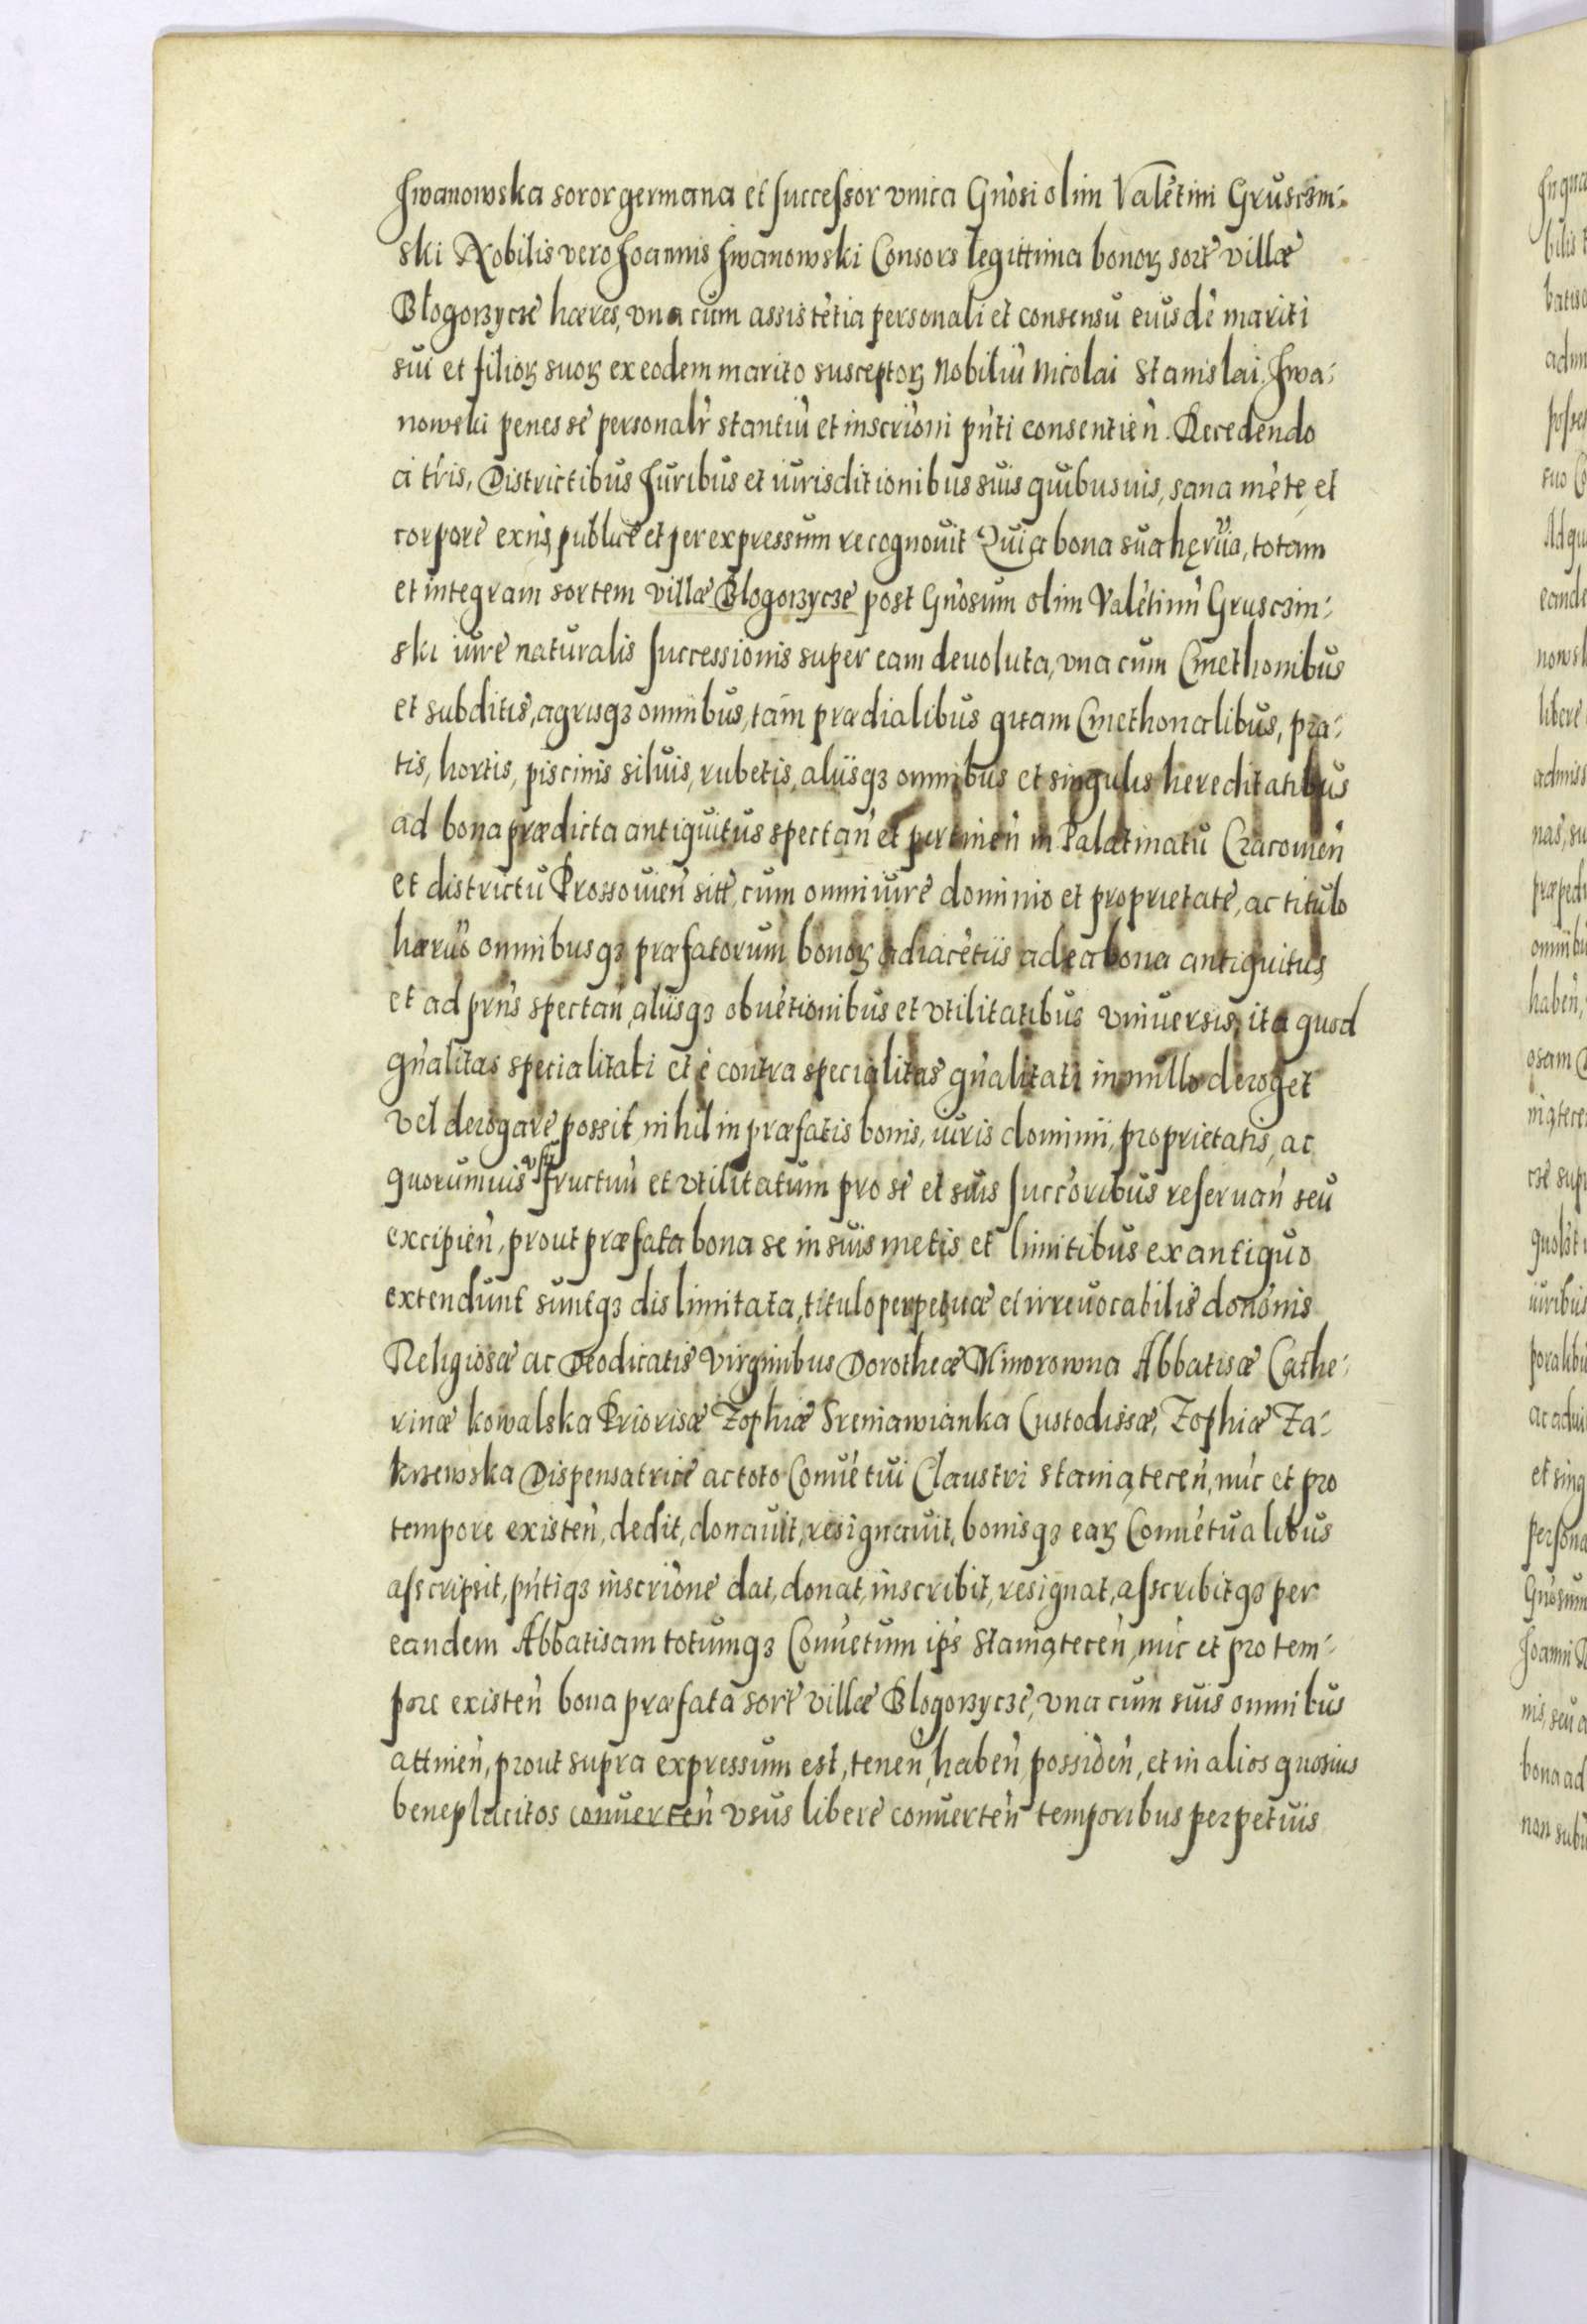 Iwanowska soror germana et successor vnica Gnosi olim Valetini Grusczin-
ski Nobilis vero Joannis Iwanowski Consors legittima bonoꝝ sort villæ
Błogorzycze hæres, vna cum assistetia personali et consensu euisde mariti
sui et filioꝝ suoꝝ ex eodem marito susceptoꝝ Nobiliu Nicolai Stanislai Iwa-
nowski penes se personalr stantiu et inscrioni pnti consentien. Recedendo
a tris, Districtibus Iuribus et iurisditionibus suis quibusuis, sana mete, et
corpore exns, publice et per expressum recognouit Quia bona sua hęrria, totam
et integram sortem villæ Błogorzycze post Gnosum olim Valetinu Grusczin-
ski iure naturalis successionis super eam deuoluta, vna cum Cmethonibus
et subditis, agrisqꝫ omnibus, tam prædialibus quam Cmethonalibus, pra-
tis, hortis, piscinis siluis, rubetis, aliisqꝫ omnibus et singulis hereditatibus
ad bona prædicta antiquitus spectan et pertinen in Palatinatu Cracouien
et districtu Prossouien sitt, cum omni iure dominio et proprietate, ac titulo
hærrio omnibusqꝫ præfatorum bonoꝝ adiacetiis ad ea bona antiquitus,
et ad prns spectan, aliisqꝫ obuetionibus et vtilitatibus vniuersis, ita quod
gnalitas specialitati et e contra specialitas gnalitati in nullo deroget
vel derogare possit, nihil in præfatis bonis, iuris dominii, proprietatis, ac
quorumuis vsu fructuu et vtilitatum pro se et suis succoribus reseruan seu
excipien, prout præfata bona se in suis metis et limitibus ex antiquo
extendunt suntqꝫ dislimitata, titulo perpetuæ et irreuocabilis donônis
Religiosæ ac Deodicatis Virginibus Dorotheæ Minorowna Abbatisæ Cathe-
rinæ Kowalska Priorisæ Zophiæ Sreniawianka Custodissæ, Zophiæ Za-
krzewska Dispensatrice ac toto Conuetui Claustri Staniątecen, nuc et pro
tempore existen, dedit, donauit, resignauit, bonisqꝫ eaꝝ Conuetualibus
asscripsit, pntiqꝫ inscrione dat, donat, inscribit, resignat, asscribitqꝫ per
eandem Abbatisam totumqꝫ Conuetum ips Staniątecen, nuc et pro tem-
pore existen bona præfata sort villæ Błogorzycze, vna cum suis omnibus
attinen, prout supra expressum est, tenen, haben, possiden, et in alios quosuis
beneplacitos conuerten vsus libere conuerten temporibus perpetuis